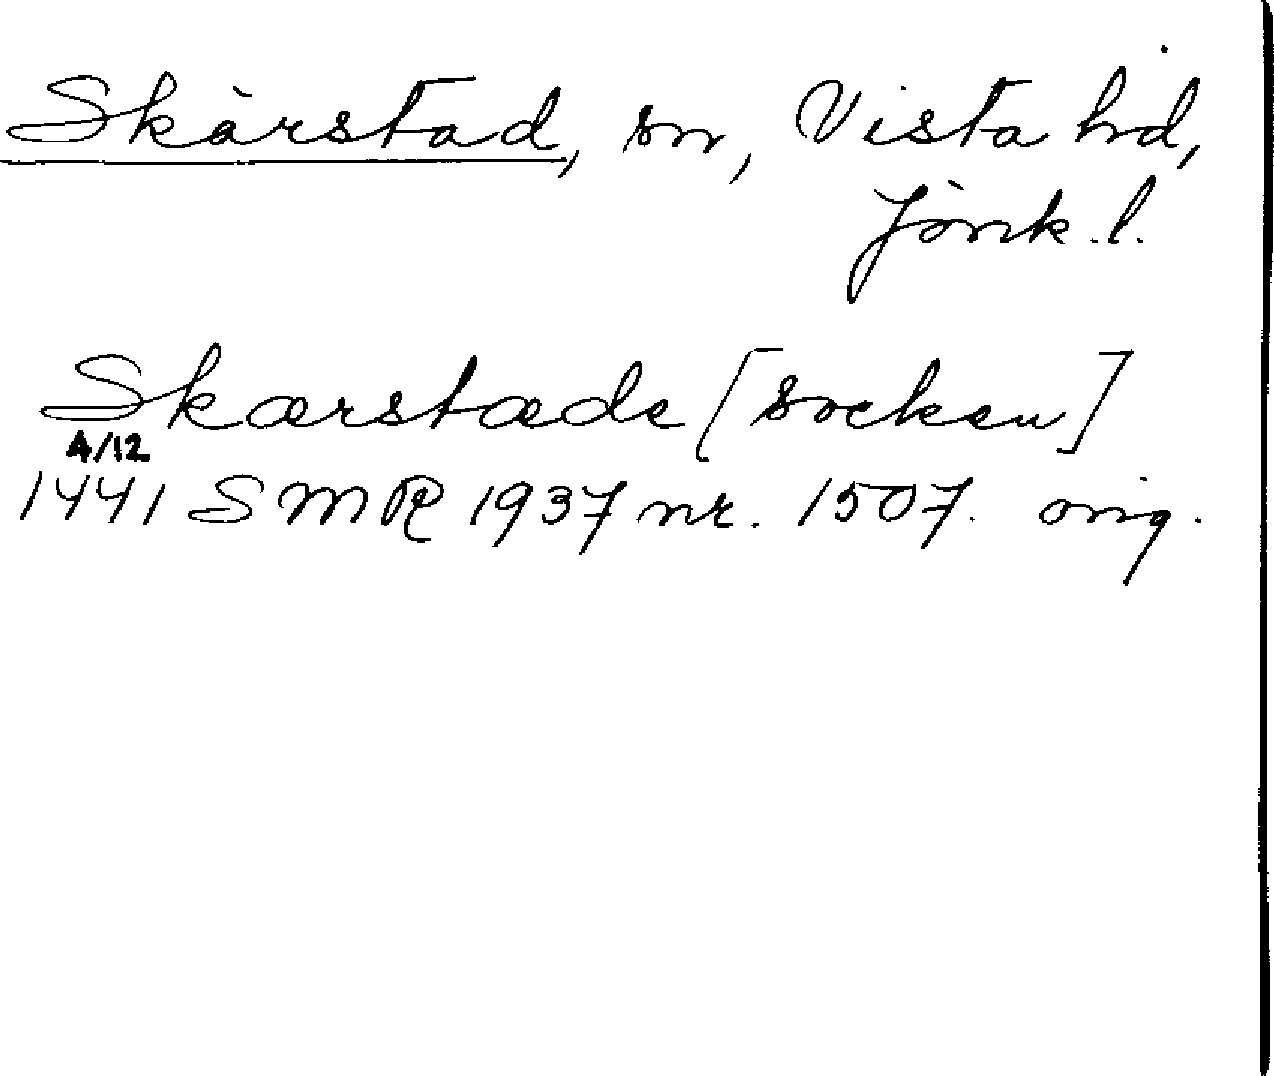 Skärstad, sn, Vista hd,
Jönk. l.
Skærstæde [socken]
4/12
1441 SMR 1937 nr. 1507. orig.